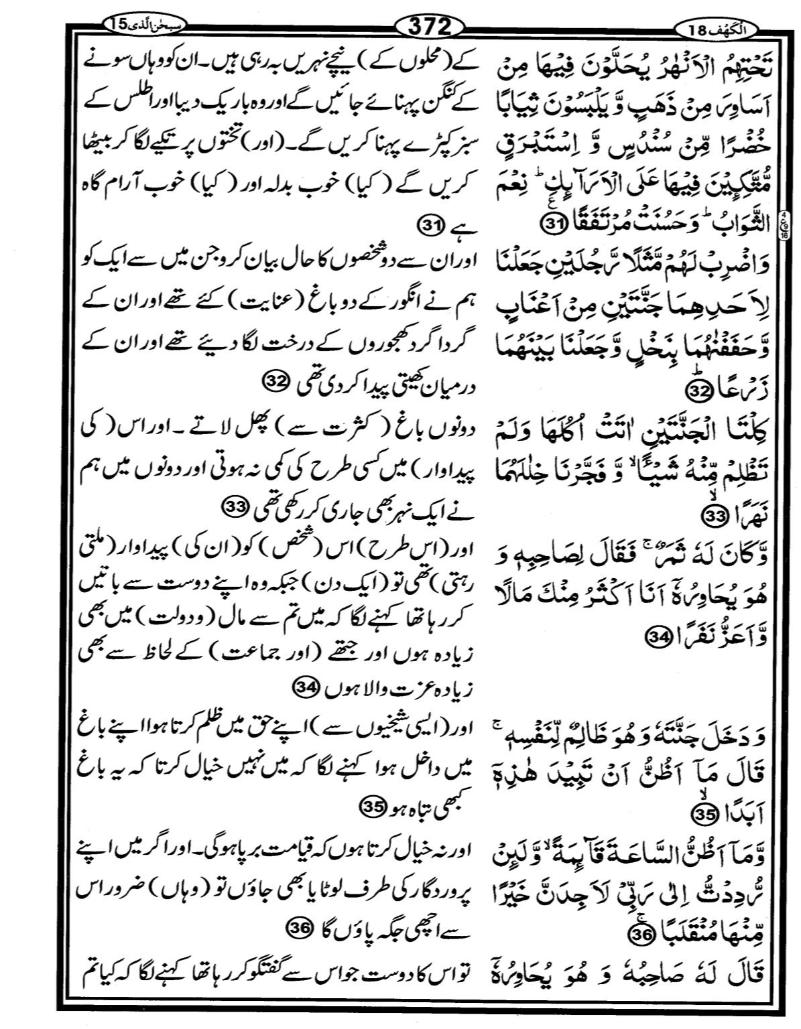 الْكَهْف 18
372
سبحٰن الّذی 15
تَحْتِهِمُ الْاَنْهٰرُ يُحَلَّوْنَ فِيْهَا مِنْ
اَسَاوِرَ مِنْ ذَهَبٍ وَّ يَلْبَسُوْنَ ثِيَابًا
خُضْرًا مِّنْ سُنْدُسٍ وَّ اِسْتَبْرَقٍ
مُّتَّكِـِٕيْنَ فِيْهَا عَلَى الْاَرَآىِٕكِ ؕ نِعْمَ
الثَّوَابُ ؕ وَحَسُنَتْ مُرْتَفَقًا 31
وَاضْرِبْ لَهُمْ مَّثَلًا رَّجُلَيْنِ جَعَلْنَا
لِاَحَدِهِمَا جَنَّتَيْنِ مِنْ اَعْنَابٍ
وَّحَفَفْنٰهُمَا بِنَخْلٍ وَّجَعَلْنَا بَيْنَهُمَا
زَرْعًا ؕ 32
كِلْتَا الْجَنَّتَيْنِ اٰتَتْ اُكُلَهَا وَلَمْ
تَظْلِمْ مِّنْهُ شَيْـًٔا ۙ وَّ فَجَّرْنَا خِلٰلَهُمَا
نَهَرًا ۙ 33
وَّكَانَ لَهٗ ثَمَرٌ ۚ فَقَالَ لِصَاحِبِهٖ وَ
هُوَ يُحَاوِرُهٗۤ اَنَا اَكْثَرُ مِنْكَ مَالًا
وَّ اَعَزُّ نَفَرًا 34
وَ دَخَلَ جَنَّتَهٗ وَ هُوَ ظَالِمٌ لِّنَفْسِهٖ ۚ
قَالَ مَاۤ اَظُنُّ اَنْ تَبِيْدَ هٰذِهٖۤ
اَبَدًا ۙ 35
وَّمَاۤ اَظُنُّ السَّاعَةَ قَآىِٕمَةً ۙ وَّلَىِٕنْ
رُّدِدْتُّ اِلٰى رَبِّيْ لَاَجِدَنَّ خَيْرًا
مِّنْهَا مُنْقَلَبًا ۚ 36
قَالَ لَهٗ صَاحِبُهٗ وَ هُوَ يُحَاوِرُهٗۤ
کے (محلوں کے) نیچے نہریں بہ رہی ہیں۔ ان کو وہاں سونے
کے کنگن پہنائے جائیں گے اور وہ باریک دیبا اور اطلس کے
سبز کپڑے پہنا کریں گے۔ (اور) تختوں پر تکیے لگا کر بیٹھا
کریں گے ( کیا) خوب بدلہ اور ( کیا) خوب آرام گاہ
ہے 31
اور ان سے دو شخصوں کا حال بیان کرو جن میں سے ایک کو
ہم نے انگور کے دو باغ (عنایت) کئے تھے اور ان کے
گردا گرد کھجوروں کے درخت لگا دیئے تھے اور ان کے
درمیان کھیتی پیدا کر دی تھی 32
دونوں باغ ( کثرت سے) پھل لاتے ۔ اور اس ( کی
پیداوار) میں کسی طرح کی کمی نہ ہوتی اور دونوں میں ہم
نے ایک نہر بھی جاری کر رکھی تھی 33
اور (اس طرح) اس (شخص) کو (ان کی) پیداوار (ملتی
رہتی) تھی تو (ایک دن) جبکہ وہ اپنے دوست سے باتیں
کر رہا تھا کہنے لگا کہ میں تم سے مال (و دولت) میں بھی
زیادہ ہوں اور جتھے (اور جماعت) کے لحاظ سے بھی
زیادہ عزت والا ہوں 34
اور (ایسی شیخیوں سے) اپنے حق میں ظلم کرتا ہوا اپنے باغ
میں داخل ہوا کہنے لگا کہ میں نہیں خیال کرتا کہ یہ باغ
کبھی تباہ ہو 35
اور نہ خیال کرتا ہوں کہ قیامت برپا ہوگی۔ اور اگر میں اپنے
پروردگار کی طرف لوٹایا بھی جاؤں تو (وہاں) ضرور اس
سے اچھی جگہ پاؤں گا 36
تو اس کا دوست جو اس سے گفتگو کر رہا تھا کہنے لگا کہ کیا تم